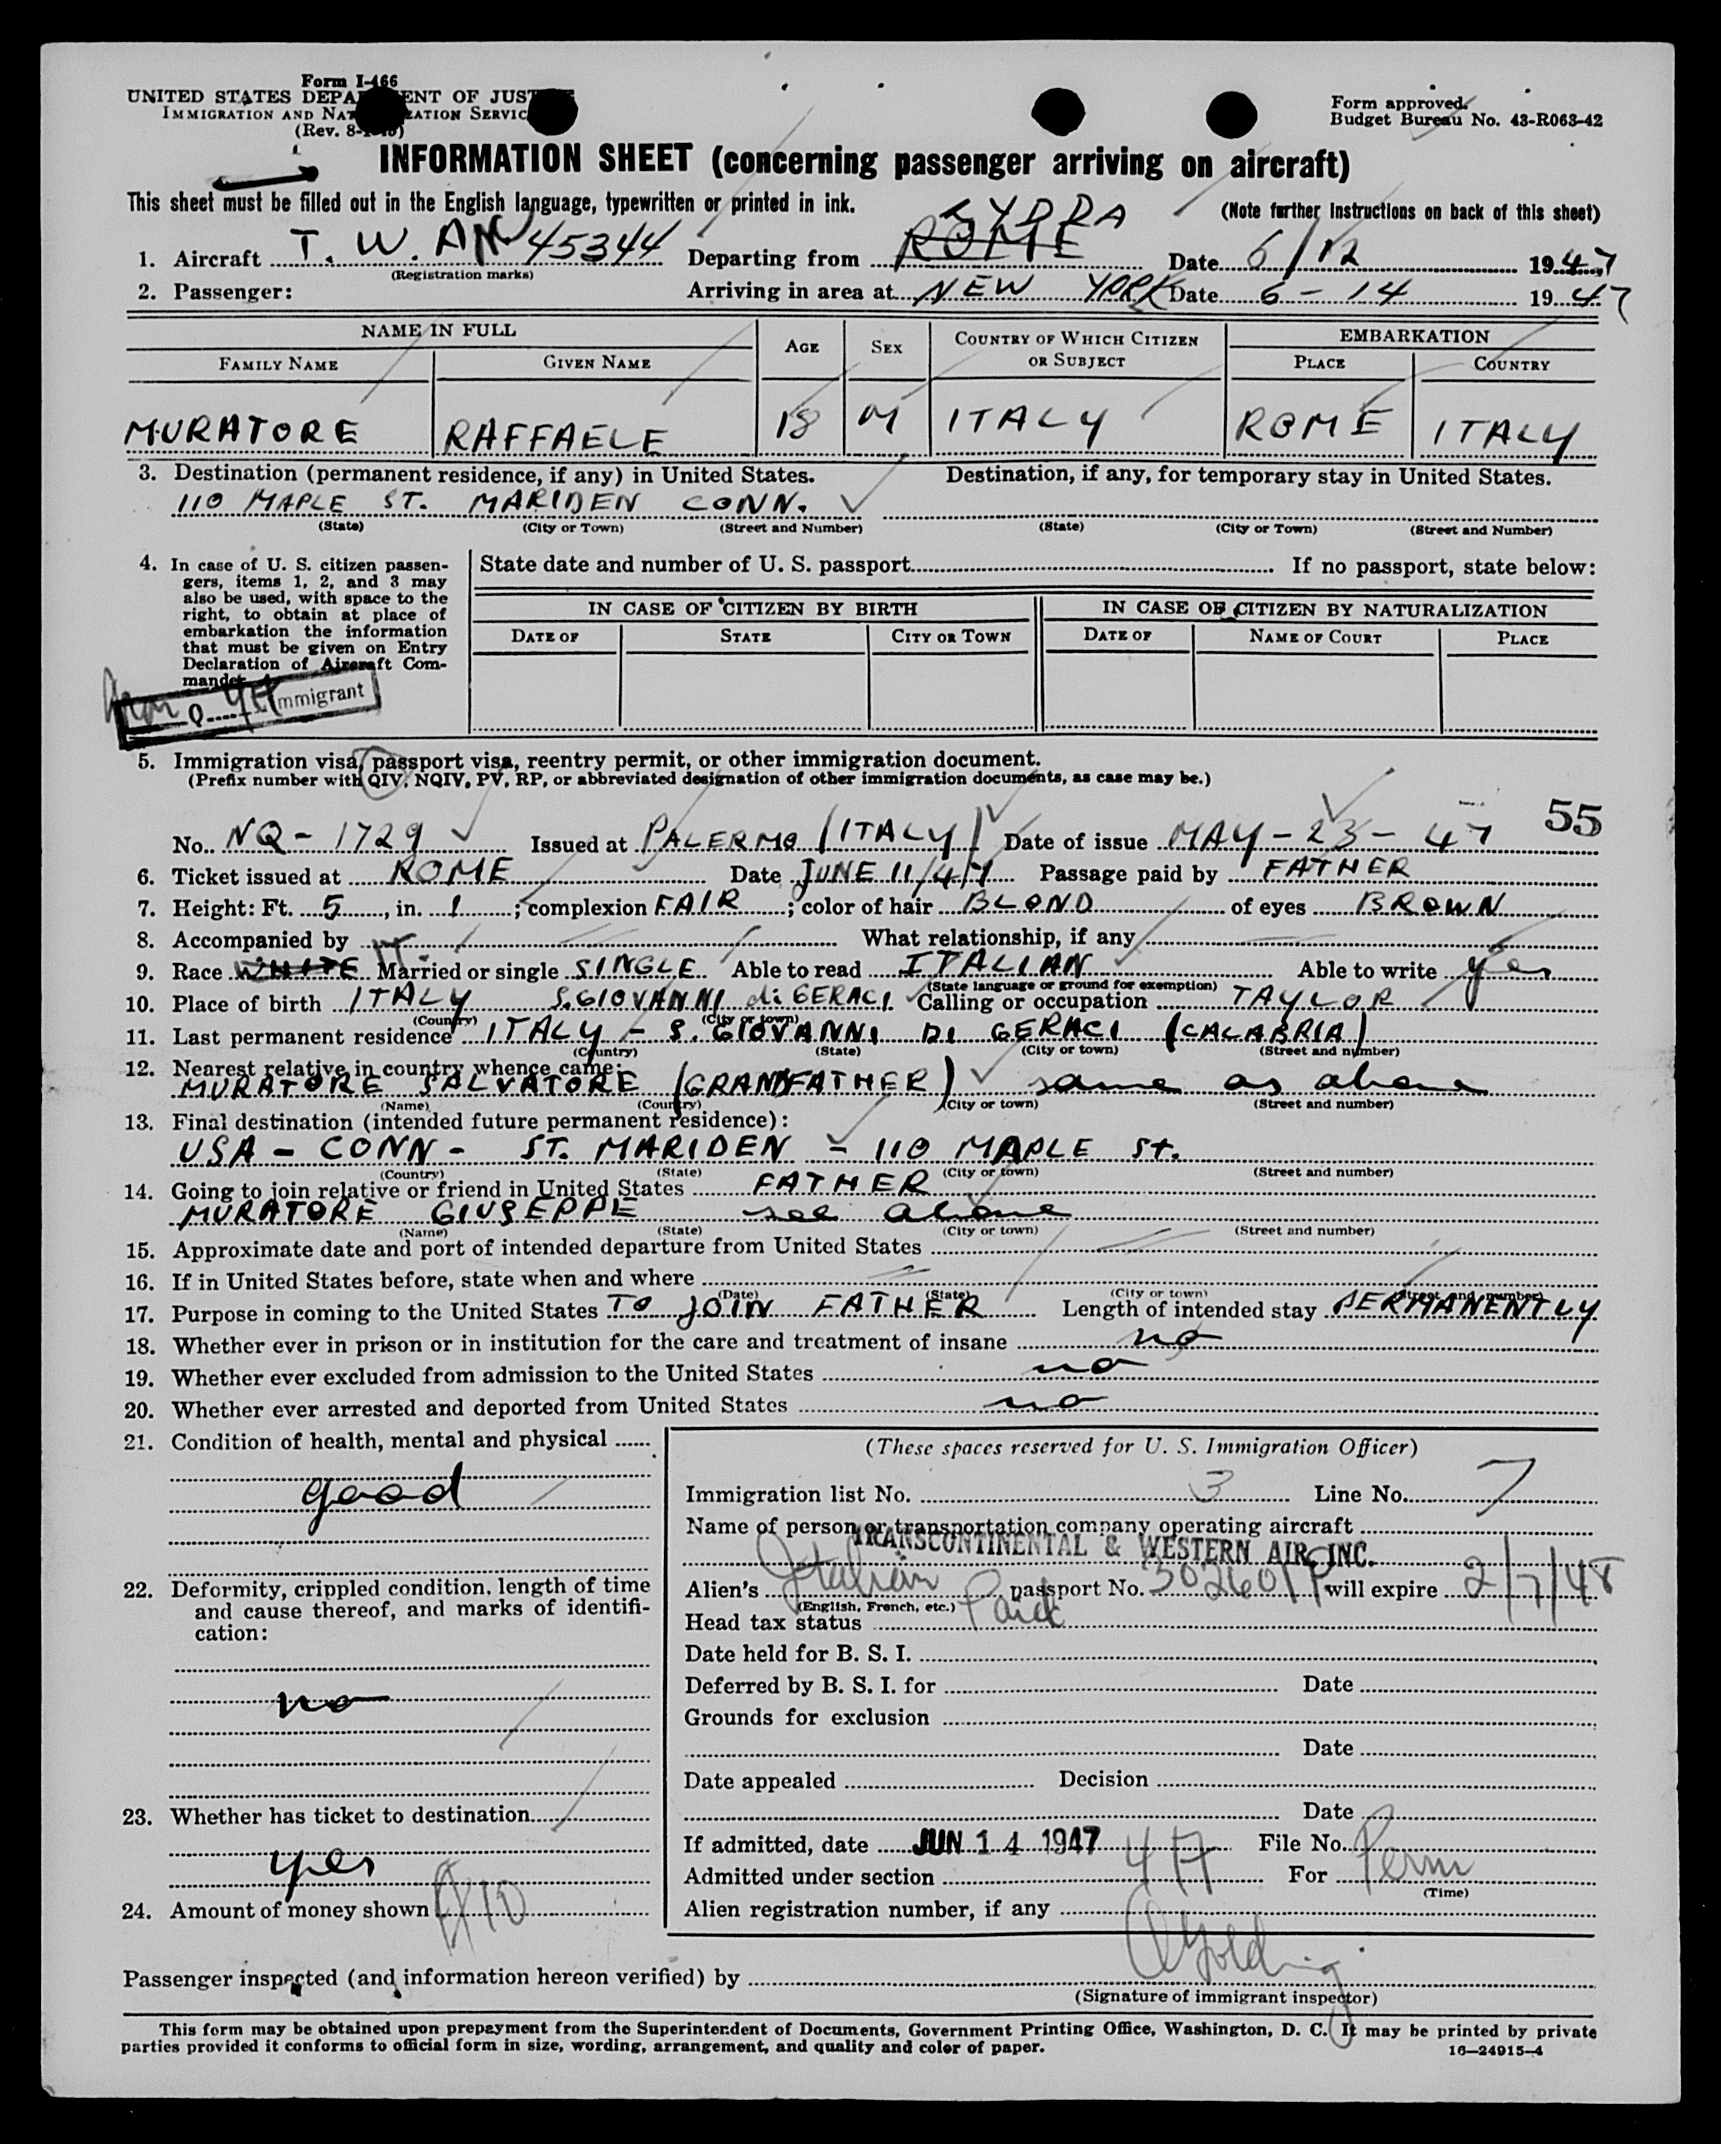 Form I-466
UNITED STATES DEPA ENT OF JUST
IMMIGRATION AND NAT ZATION SERVIC
(Rev. 8-
Form approved.
Budget Bureau No. 43-R063-42
INFORMATION SHEET (concerning passenger arriving on aircraft)
This sheet must be filled out in the English language, typewritten or printed in ink.
(Note further instructions on back of this sheet)
1. Aircraft T. W. A. 45344 Departing from ROME LYDDA Date 6/12 1947
(Registration marks)
2. Passenger: Arriving in area at NEW YORK Date 6-14 1947
NAME IN FULL AGE SEX COUNTRY OF WHICH CITIZEN OR SUBJECT EMBARKATION
FAMILY NAME GIVEN NAME PLACE COUNTRY
MURATORE RAFFAELE 18 M ITALY ROME ITALY
3. Destination (permanent residence, if any) in United States. Destination, if any, for temporary stay in United States.
110 MAPLE ST. MARIDEN CONN.
(State) (City or Town) (Street and Number) (State) (City or Town) (Street and Number)
4. In case of U. S. citizen passen-
gers, items 1, 2, and 3 may
also be used, with space to the
right, to obtain at place of
embarkation the information
that must be given on Entry
Declaration of Aircraft Com-
mander.
Q mmigrant
State date and number of U. S. passport If no passport, state below:
IN CASE OF CITIZEN BY BIRTH IN CASE OF CITIZEN BY NATURALIZATION
DATE OF STATE CITY OR TOWN DATE OF NAME OF COURT PLACE
5. Immigration visa, passport visa, reentry permit, or other immigration document.
(Prefix number with QIV, NQIV, PV, RP, or abbreviated designation of other immigration documents, as case may be.)
55
No. NQ-1729 Issued at PALERMO (ITALY) Date of issue MAY-23-47
6. Ticket issued at ROME Date JUNE 11/47 Passage paid by FATHER
7. Height: Ft. 5, in. 1; complexion FAIR; color of hair BLOND of eyes BROWN
8. Accompanied by What relationship, if any
9. Race WHITE IT. Married or single SINGLE Able to read ITALIAN Able to write yes
(State language or ground for exemption)
10. Place of birth ITALY S. GIOVANNI di GERACI Calling or occupation TAYLOR
(Country) (City or town)
11. Last permanent residence ITALY - S. GIOVANNI DI GERACI (CALABRIA)
(Country) (State) (City or town) (Street and number)
12. Nearest relative in country whence came:
MURATORE SALVATORE (GRANDFATHER) same as above
(Name) (Country) (City or town) (Street and number)
13. Final destination (intended future permanent residence):
USA - CONN - ST. MARIDEN - 110 MAPLE St.
(Country) (State) (City or town) (Street and number)
14. Going to join relative or friend in United States FATHER
MURATORE GIUSEPPE see above
(Name) (State) (City or town) (Street and number)
15. Approximate date and port of intended departure from United States
16. If in United States before, state when and where
(Date) (State) (City or town) (Street and number)
17. Purpose in coming to the United States TO JOIN FATHER Length of intended stay PERMANENTLY
18. Whether ever in prison or in institution for the care and treatment of insane no
19. Whether ever excluded from admission to the United States no
20. Whether ever arrested and deported from United States no
21. Condition of health, mental and physical
good
22. Deformity, crippled condition, length of time
and cause thereof, and marks of identifi-
cation:
no
23. Whether has ticket to destination
yes
24. Amount of money shown $10
(These spaces reserved for U. S. Immigration Officer)
Immigration list No. 3 Line No. 7
Name of person or transportation company operating aircraft
TRANSCONTINENTAL & WESTERN AIR, INC.
Alien's Italian passport No. 302601P will expire 2/7/48
(English, French, etc.)
Head tax status Paid
Date held for B. S. I.
Deferred by B. S. I. for Date
Grounds for exclusion
Date
Date appealed Decision
Date
If admitted, date JUN 14 1947 File No.
Admitted under section 4A For Perm
(Time)
Alien registration number, if any
Passenger inspected (and information hereon verified) by
(Signature of immigrant inspector)
This form may be obtained upon prepayment from the Superintendent of Documents, Government Printing Office, Washington, D. C. It may be printed by private
parties provided it conforms to official form in size, wording, arrangement, and quality and color of paper.
16—24915-4